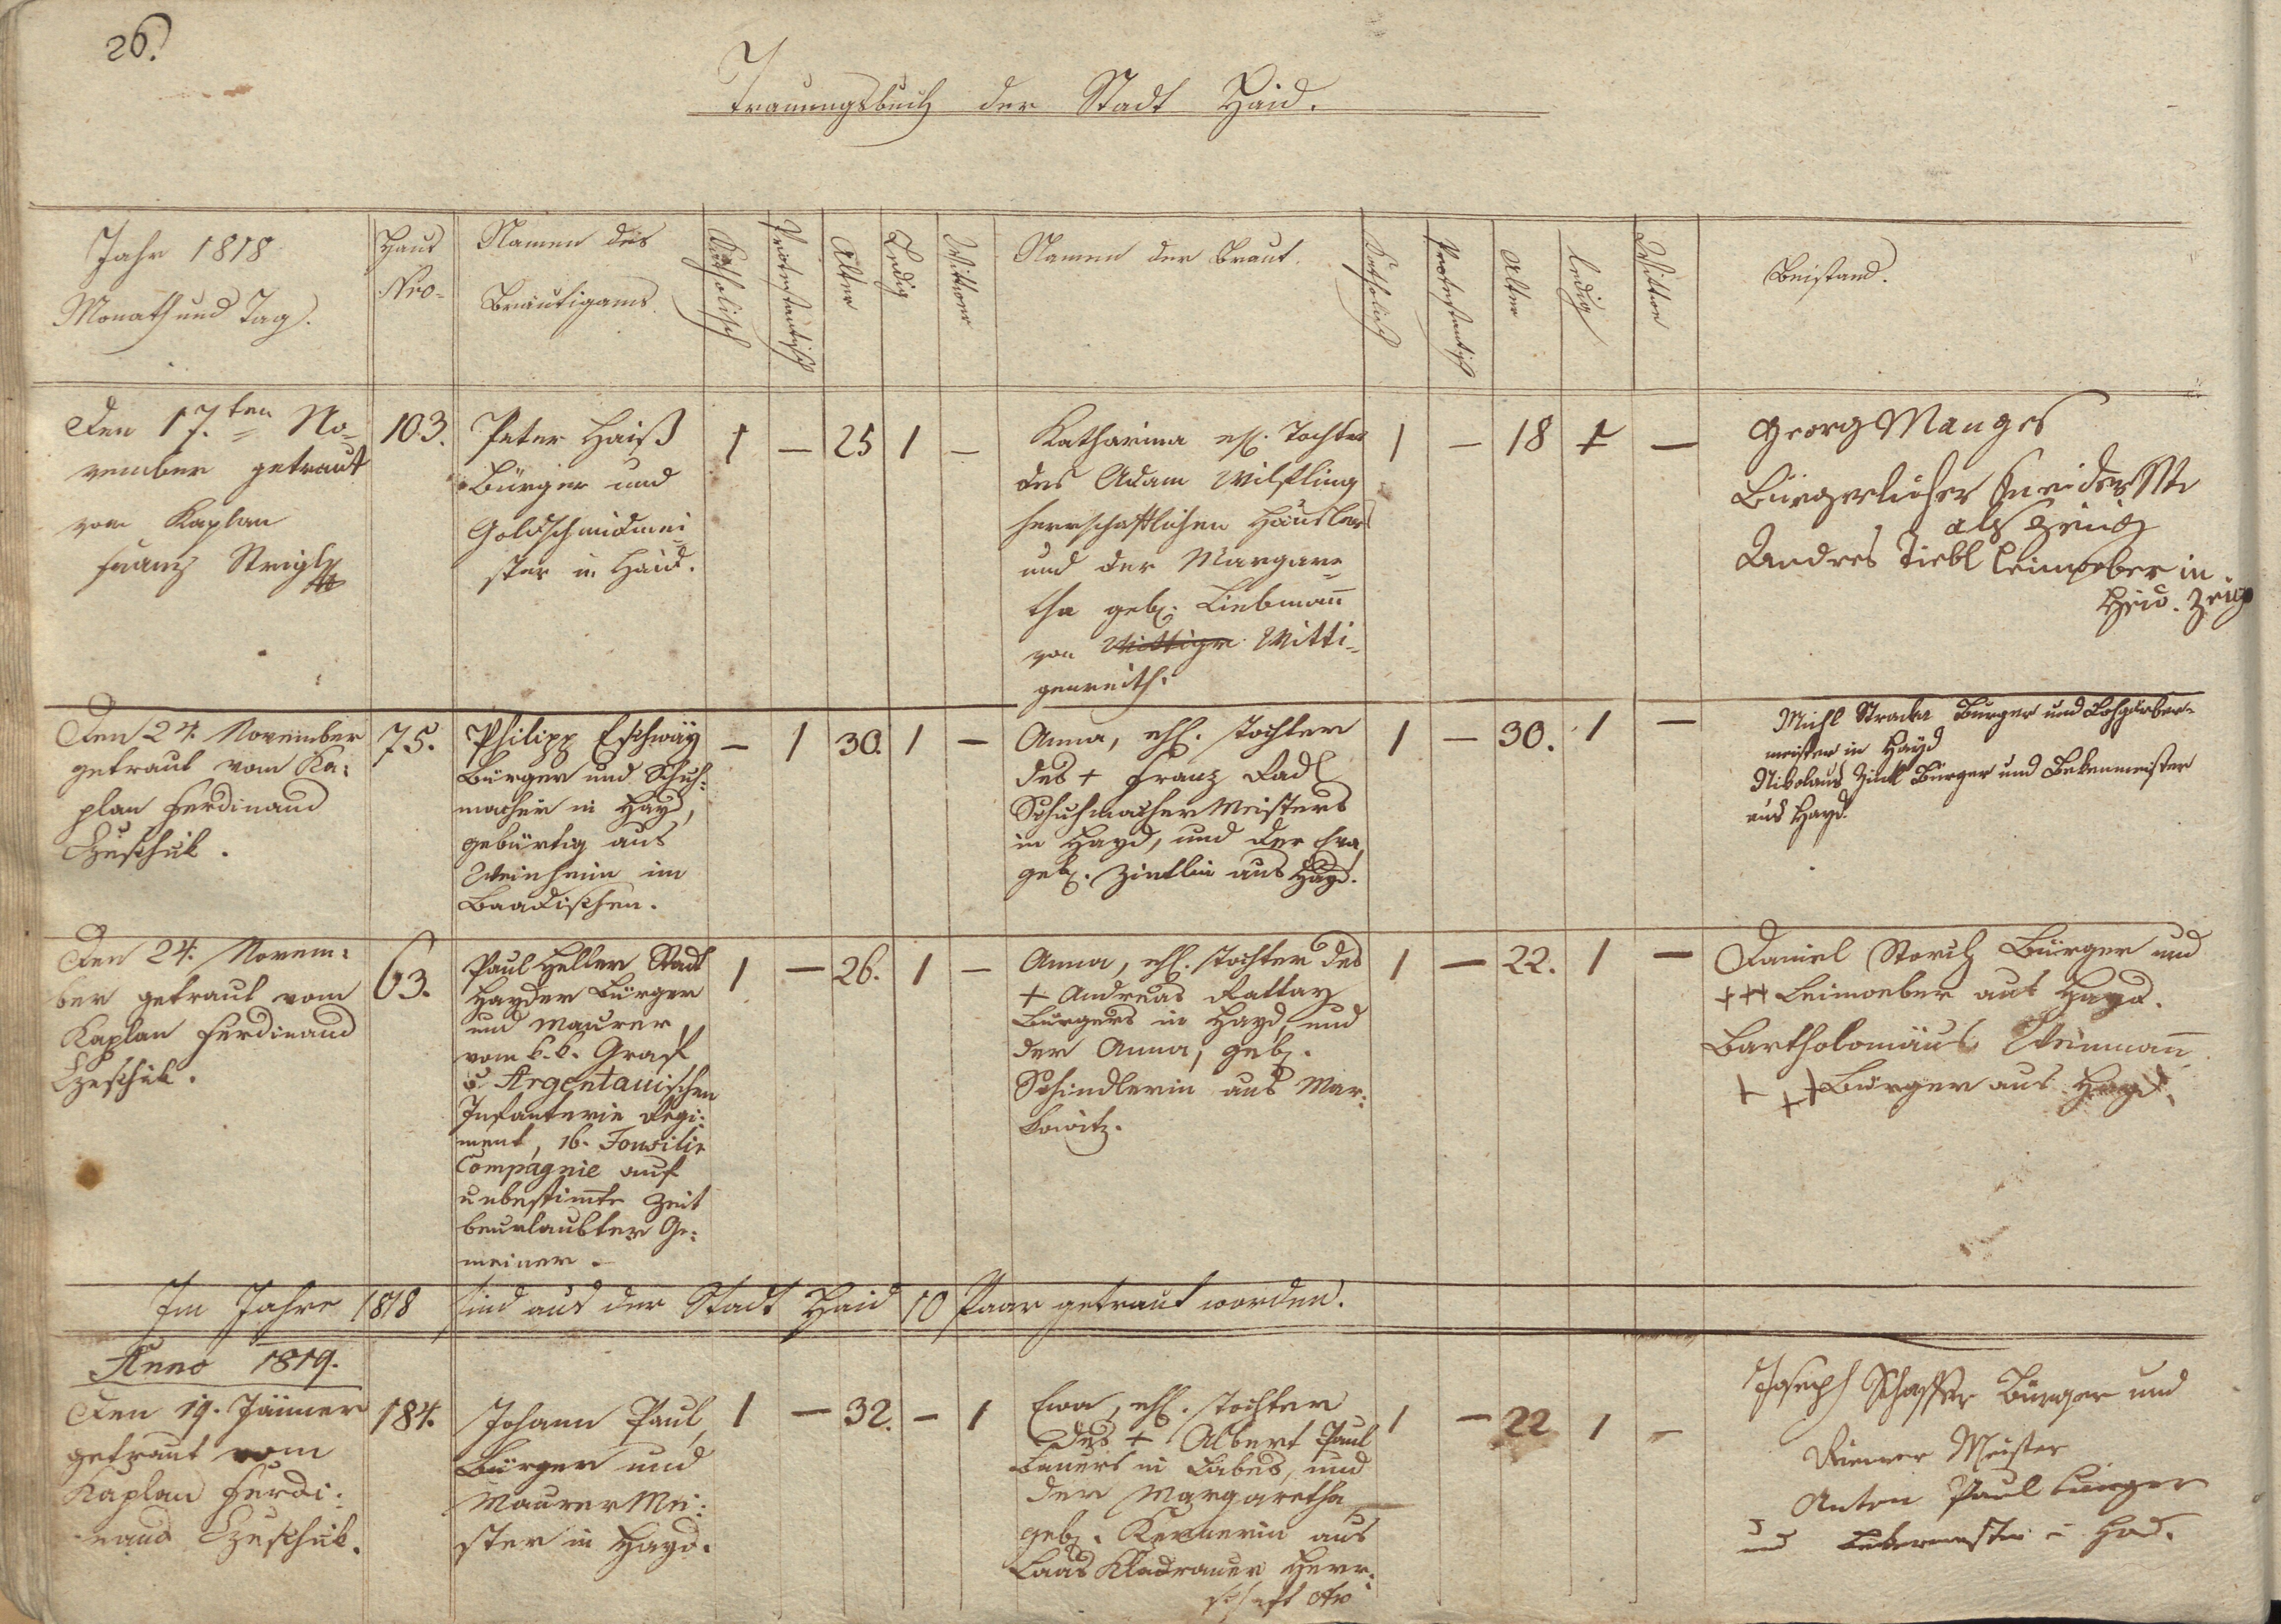 26.
Trauungsbuch der Stadt Haid.
Jahr 1818
Monath und Tag.
Haus
Nro.
Namen des
Bräutigams.
Katholisch
Protestantisch
Alter
Ledig
Wittwer
Namen der Braut.
Katholisch
Protestantisch
Alter
ledig
Wittwe
Beistand.
Den 17.ten No=
vember getraut
vom Kaplan
Franz
103.
Peter Haiß
Bürger und
Goldschmidmei=
ster in Haid.
1 – 25 1 –
Katharina ehl. Tochter
des Adam Wilfling
herrschaftlichen Häuslers
und der Margare=
tha geb. Liebmañ
von Wittige Witti=
genreith.
1 – 18 1 –
Georg Manges
Bürgerlicher
als Zeug
Andres Tiebl Leinweber in
Haid. Zeug
Den 24. November
getraut vom Ka:
plan Ferdinand
75.
Philipp Eschwäy
Bürger und Schuh:
macher in Hayd,
gebürtig aus
Weinheim im
Baadischen.
– 1 30. 1 –
Anna, ehl. Tochter
des + Franz Radl
Schuhmacher Meisters
in Hayd, und der Eva,
geb. aus Hayd.
1 – 30. 1 –
Michl Straka Bürger und Lohgärber-
meister in Hayd
Nikolaus Zintl Bürger und Bekenmeister
aus Hayd.
Den 24. Novem:
ber getraut vom
Kaplan Ferdinand
63.
Paul Heller Stadt
Hayder Bürger
und Maurer,
vom k. k. Graf
v. Argentauischen
Infanterie Regi:
ment, 16. Fousilir
Compagnie auf
unbestim̄te Zeit
beurlaubter Ge:
meiner.
1 – 26. 1 –
Anna, ehl. Tochter des
+ Andreas Rattay
Bürgers in Hayd, und
der Anna, geb.
Schindlerin aus Mar:
1 – 22. 1 –
Daniel Storch Bürger und
+++ Leinweber aus Hayd.
Bartholomäus
+ ++ Bürger aus Hayd.
Im Jahre 1818 sind aus der Stadt Haid 10 Paar getraut worden.
Anno 1819.
Den 19. Jänner
getraut vom
Kaplan Ferdi:
nand
184.
Johann Paul,
Bürger und
Maurer Mei:
ster in Hayd.
1 – 32. – 1
Eva, ehl. Tochter
des + Albert Paul
Bauers in und
der Margaretha,
geb. aus
Kladrauer Herr:
schaft
1 – 22 1 –
Joseph Schaffer Bürger und
Riemer Meister
Anton Paul Bürger
und